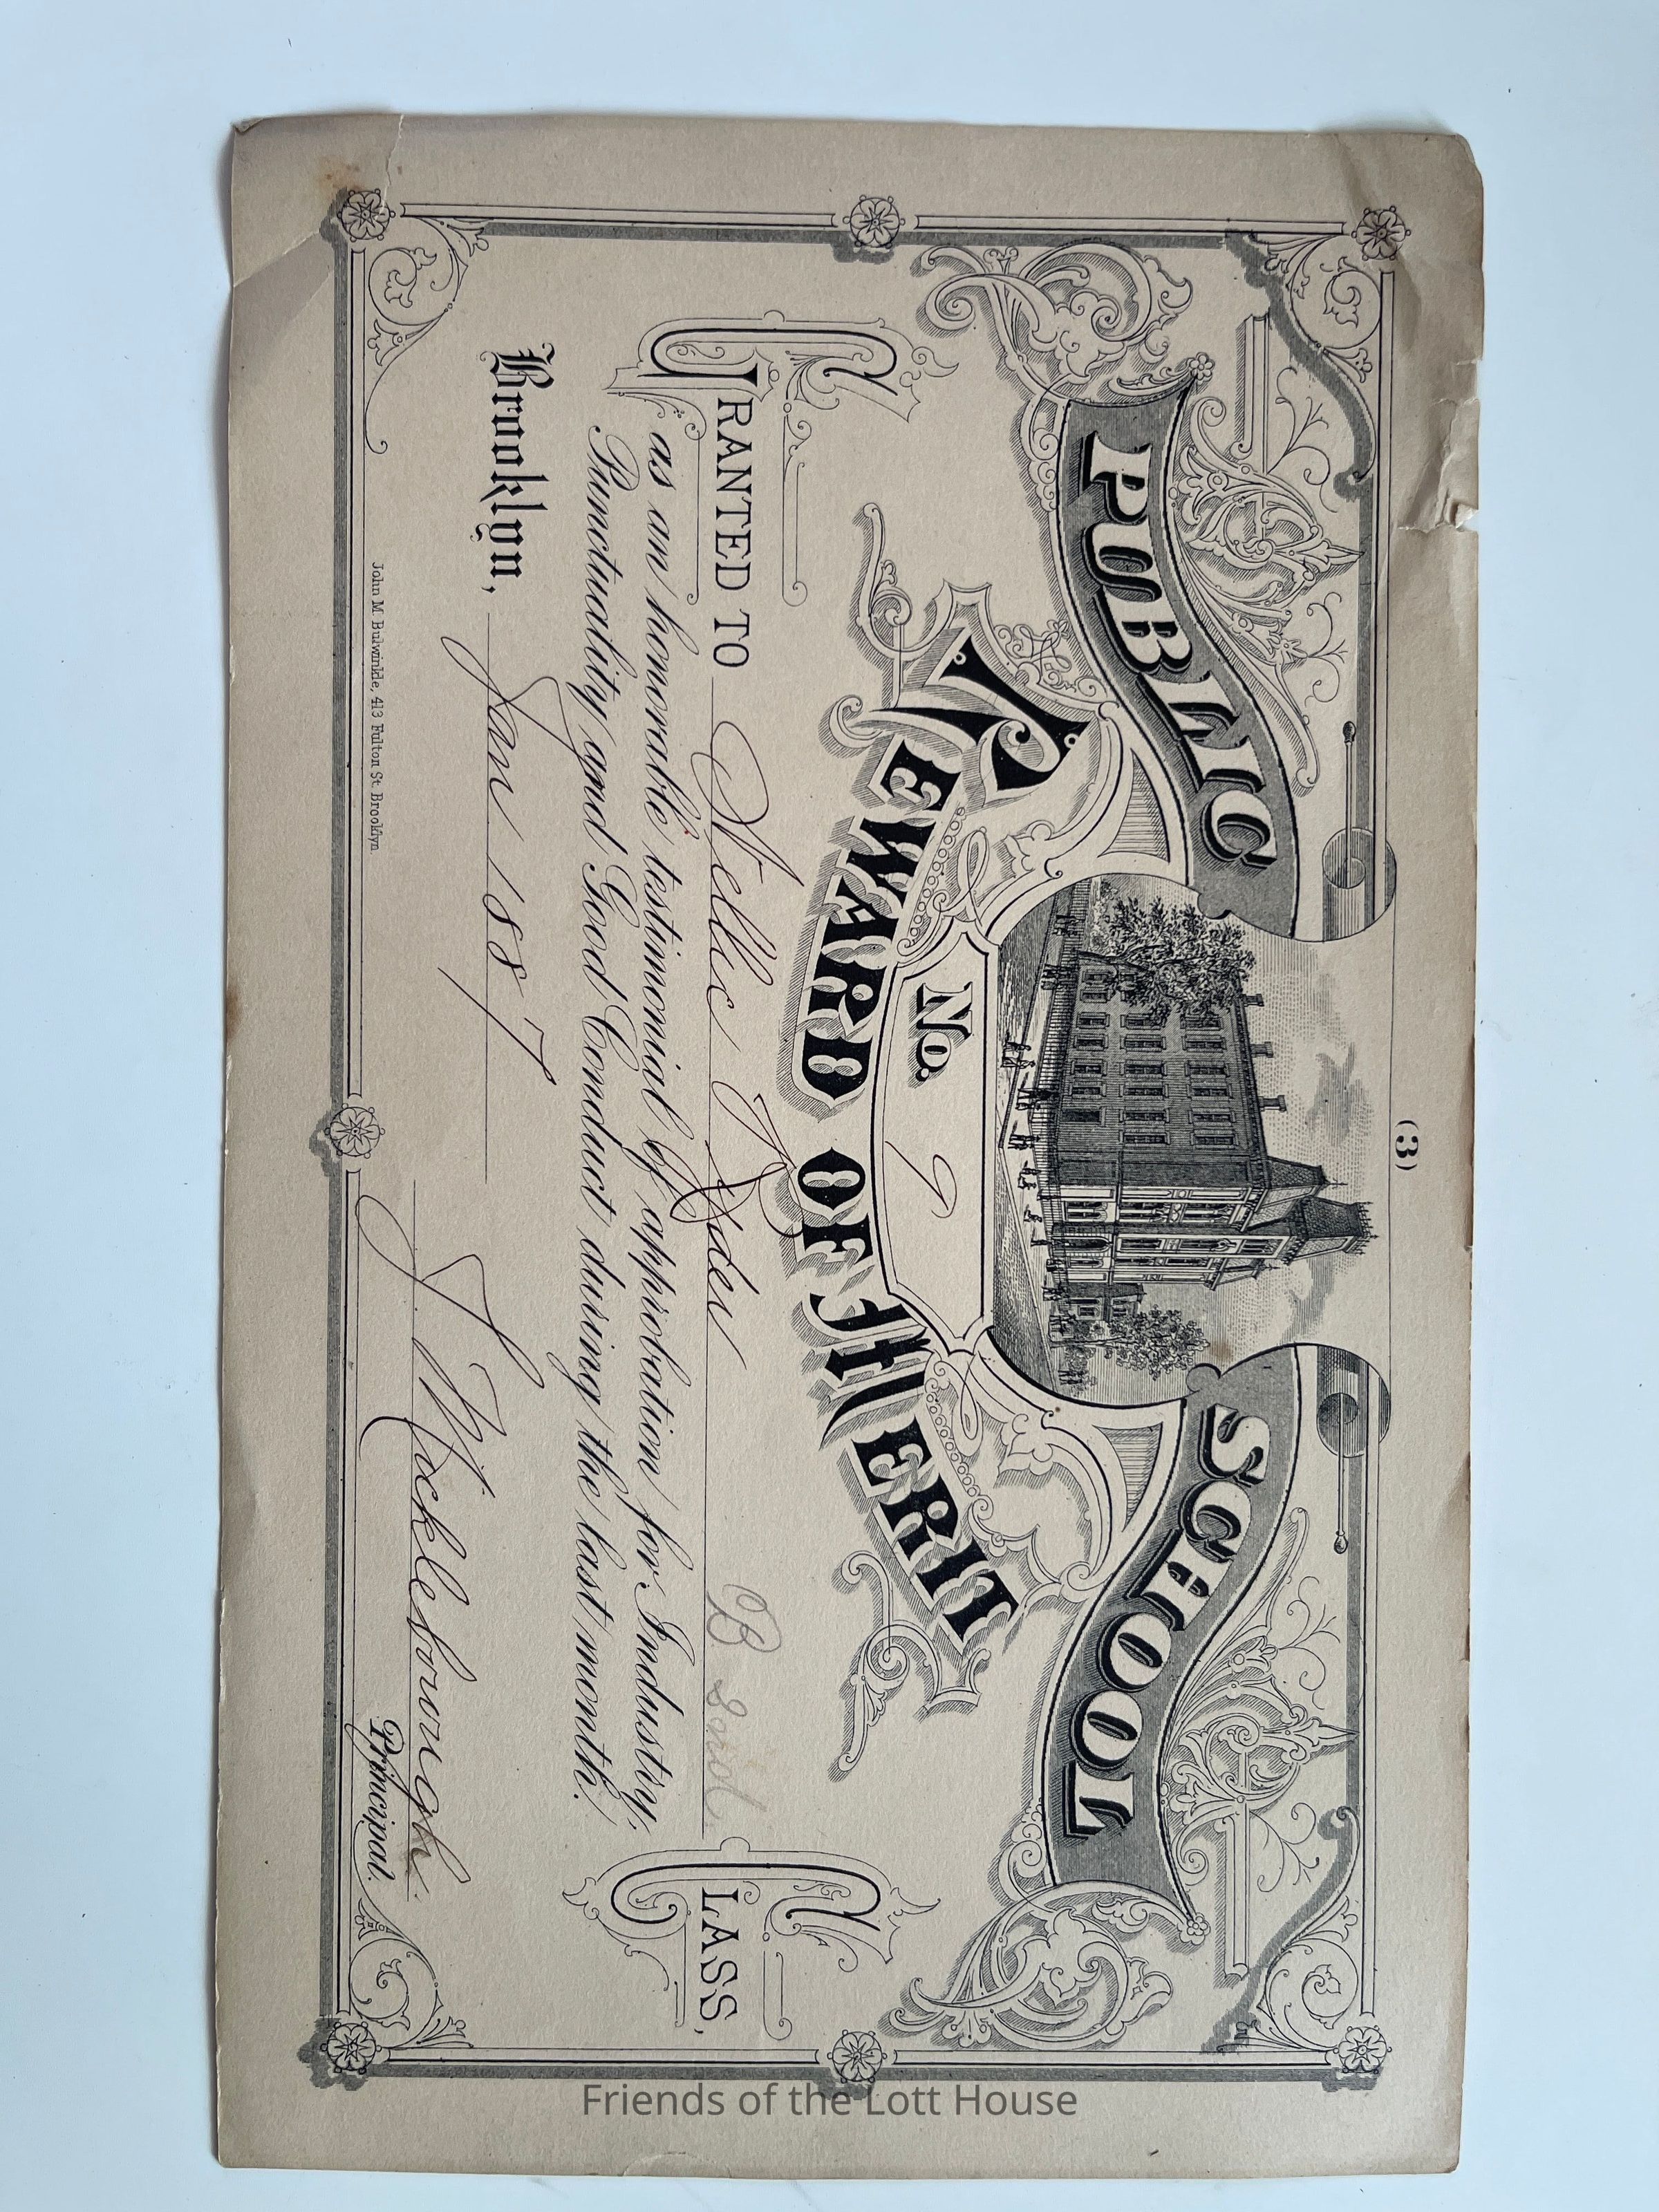 (3)
PUBLIC SCHOOL
No. 9
REWARD OF MERIT
GRANTED TO Nellie Ryder B 3rd CLASS,
as an honorable testimonial of approbation for Industry,
Punctuality and Good Conduct during the last month.
Brooklyn, Jan 1887
J. Mickleborough.
Principal.
John M Bulwinkle, 413 Fulton St Brooklyn.
Friends of the Lott House